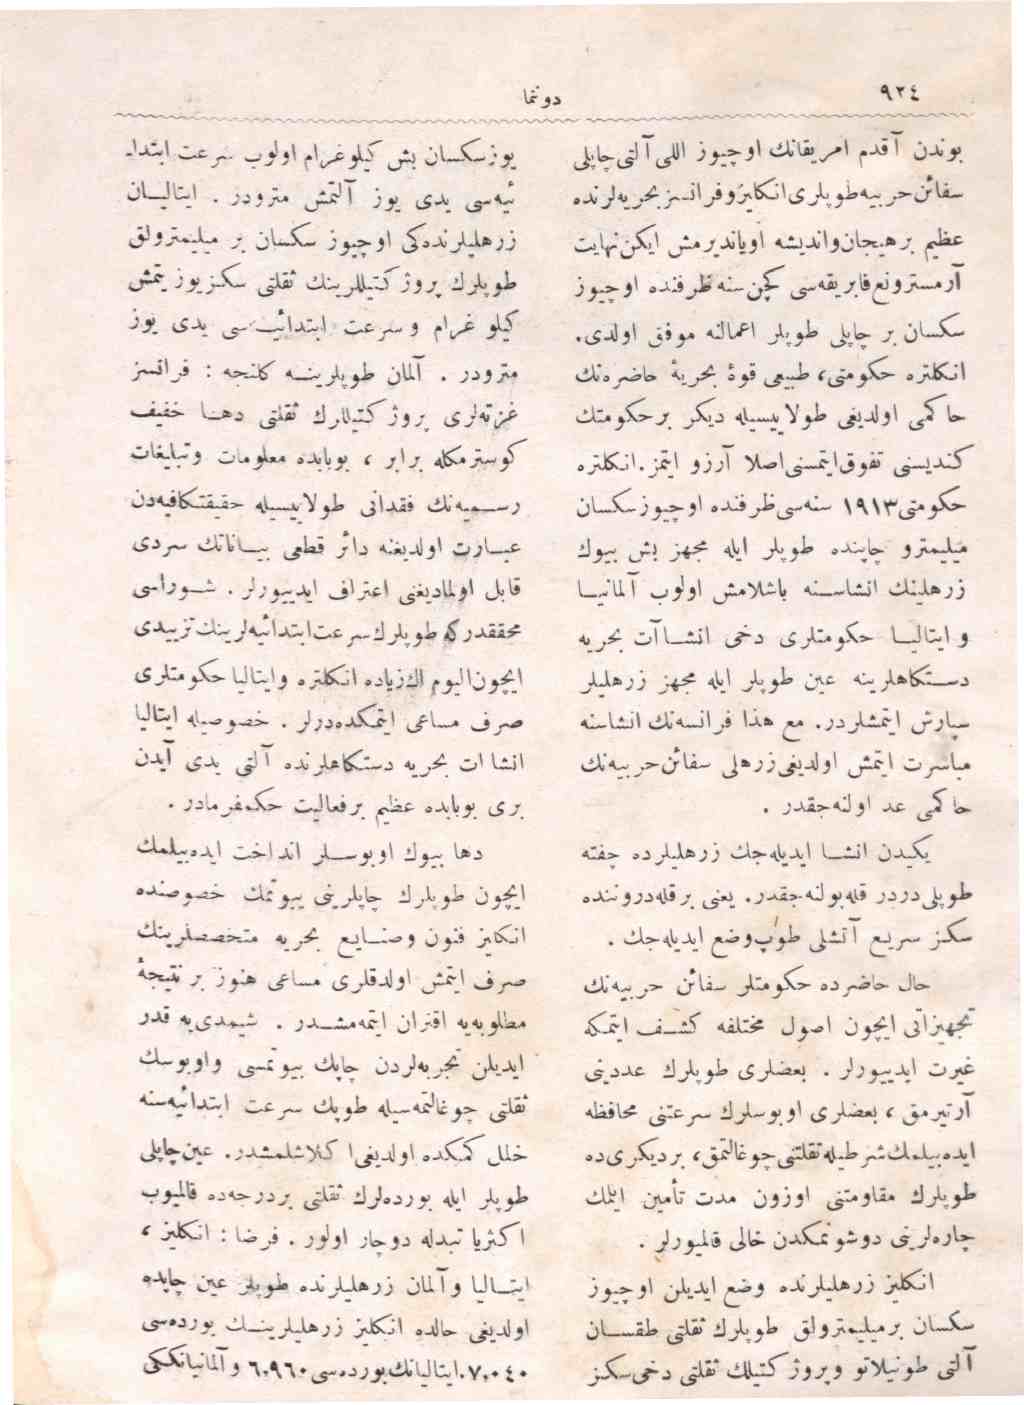 ٩٢٤
دونما
بوندن آقدم امریقانك اوچیوز اللی آلتی چاپلی
سفائن حربیه طوپلری انكلیز و فرانسز بحریه لرنده
عظیم برهیجان و اندیشه اویاندیرمش ایكن نهایت
آرمسترونغ فابریقه سی كچن سنه ظرفنده اوچیوز
سكسان بر چاپلی طوپلر اعمالنه موفق اولدی.
انكلتره حكومتی، طبیعی قوۀ بحریۀ حاضره نك
حاكمی اولدیغی طولاییسیله دیكر برحكومتك
كندیسنی تفوق ایتمسنی اصلا آرزو ایتمز. انكلتره
حكومتی ١٩١٣ سنه سی ظرفنده اوچیوز سكسان
میلیمترو چاپنده طوپلر ایله مجهز بش بیوك
زرهلینك انشاسنه باشلامش اولوب آلمانیا
و ایتالیا حكومتلری دخی انشاآت بحریه
دستكاهلرینه عین طوپلر ایله مجهز زرهلیلر
سپارش ایتمشلردر. مع هذا فرانسه نك انشاسنه
مباشرت ایتمش اولدیغی زرهلی سفائن حربیه نك
حاكمی عد اولنه جقدر .
یكیدن انشا ایدیله جك زرهلیلرده چفته
طوپلی دردر قله بولنه جقدر. یعنی برقله دروننده
سكز سریع آتشلی طوپ وضع ایدیله جك .
حال حاضرده حكومتلر سفائن حربیه نك
تجهیزاتی ایچون اصول مختلفه كشف ایتمكه
غیرت ایدییورلر . بعضلری طوپلرك عددینی
آرتیرمق ، بعضلری اوبوسلرك سرعتنی محافظه
ایده بیلمك شرطیله ثقلتنی چوغالتمق، بردیكری ده
طوپلرك مقاومتنی اوزون مدت تأمین ایتمك
چاره لرینی دوشونمكدن خالی قالمیورلر .
انكلیز زرهلیلرنده وضع ایدیلن اوچیوز
سكسان برمیلیمترولق طوپلرك ثقلتی طقسان
آلتی طونیلاتو و پروژ كتیلك ثقلتی دخی سكز
یوز سكسان بش كیلو غرام اولوب سرعت ابتدا-
ئیه سی یدی یوز آلتمش مترودر . ایتالیان
زرهلیلرنده كی اوچیوز سكسان بر میلیمترولق
طوپلرك پروژ كتیللرینك ثقلتی سكز یوز یتمش
كیلو غرام و سرعت ابتدائیه سی یدی یوز
مترودر . آلمان طوپلرینه كلنجه : فرانسز
غزته لری پروژ كتیللرك ثقلتی دها خفیف
كوسترمكله برابر ، بوبابده معلومات و تبلیغات
رسمیه نك فقدانی طولاییسیله حقیقتكافیه دن
عبارت اولدیغنه دائر قطعی بیاناتك سردی
قابل اولمادیغنی اعتراف ایدییورلر . شوراسی
محققدر كه طوپلرك سرعت ابتدائیه لرینك تزییدی
ایچون الیوم اك زیاده انكلتره و ایتالیا حكومتلری
صرف مساعی ایتمكده درلر . خصوصیله ایتالیا
انشاات بحریه دستكاهلرنده آلتی یدی آیدن
بری بوبابده عظیم برفعالیت حكمفرمادر .
دها بیوك اوبوسلر انداخت ایده بیلمك
ایچون طوپلرك چاپلرینی بیوتمك خصوصنده
انكلیز فنون و صنایع بحریه متخصصلرینك
صرف ایتمش اولدقلری مساعی هنوز بر نتیجۀ
مطلوبه یه اقتران ایتمه مشدر . شیمدی یه قدر
ایدیلن تجربه لردن چاپك بیوتمسی و اوبوسك
ثقلتی چوغالتمه سیله طوپك سرعت ابتدائیه سنه
خلل كلمكده اولدیغی اكلاشلمشدر. عین چاپلی
طوپلر ایله بورده لرك ثقلتی بردرجه ده قالمیوب
اكثریا تبدله دوچار اولور . فرضا : انكلیز ،
ایتالیا و آلمان زرهلیلرنده طوپلر عین چاپده
اولدیغی حالده انكلیز زرهلیلرینك بورده سی
٧,٠٤٠. ایتالیانك بورده سی ٦,٩٦٠ و آلمانیانككی